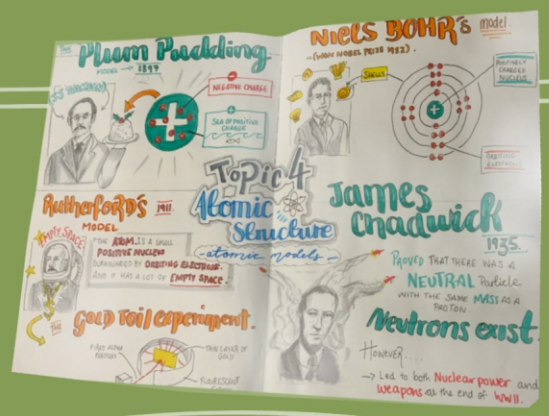 THE
Plum Pudding
MODEL → 1897
JJ THOMSON
NEGATIVE CHARGE
SEA OF POSITIVE
CHARGE
NIELS BOHR'S model.
SHELLS
POSITIVELY
CHARGED
NUCLEUS
ORBITING
Topic 4
Atomic
Structure
atomic models
Rutherford's 1911.
MODEL
EMPTY SPACE
"THE ATOM IS A SMALL
POSITIVE NUCLEUS
SURROUNDED BY ORBITING ELECTRONS.
AND IT HAS A LOT OF EMPTY SPACE."
THE
GOLD foil experiment.
THIN LAYER OF
GOLD
FLUORESCENT
James
Chadwick
1935.
PROVED THAT THERE WAS A
NEUTRAL Particle
WITH THE SAME MASS AS A
PROTON.
Neutrons exist.
However...
→ Led to both Nuclear power and
weapons at the end of WWII.